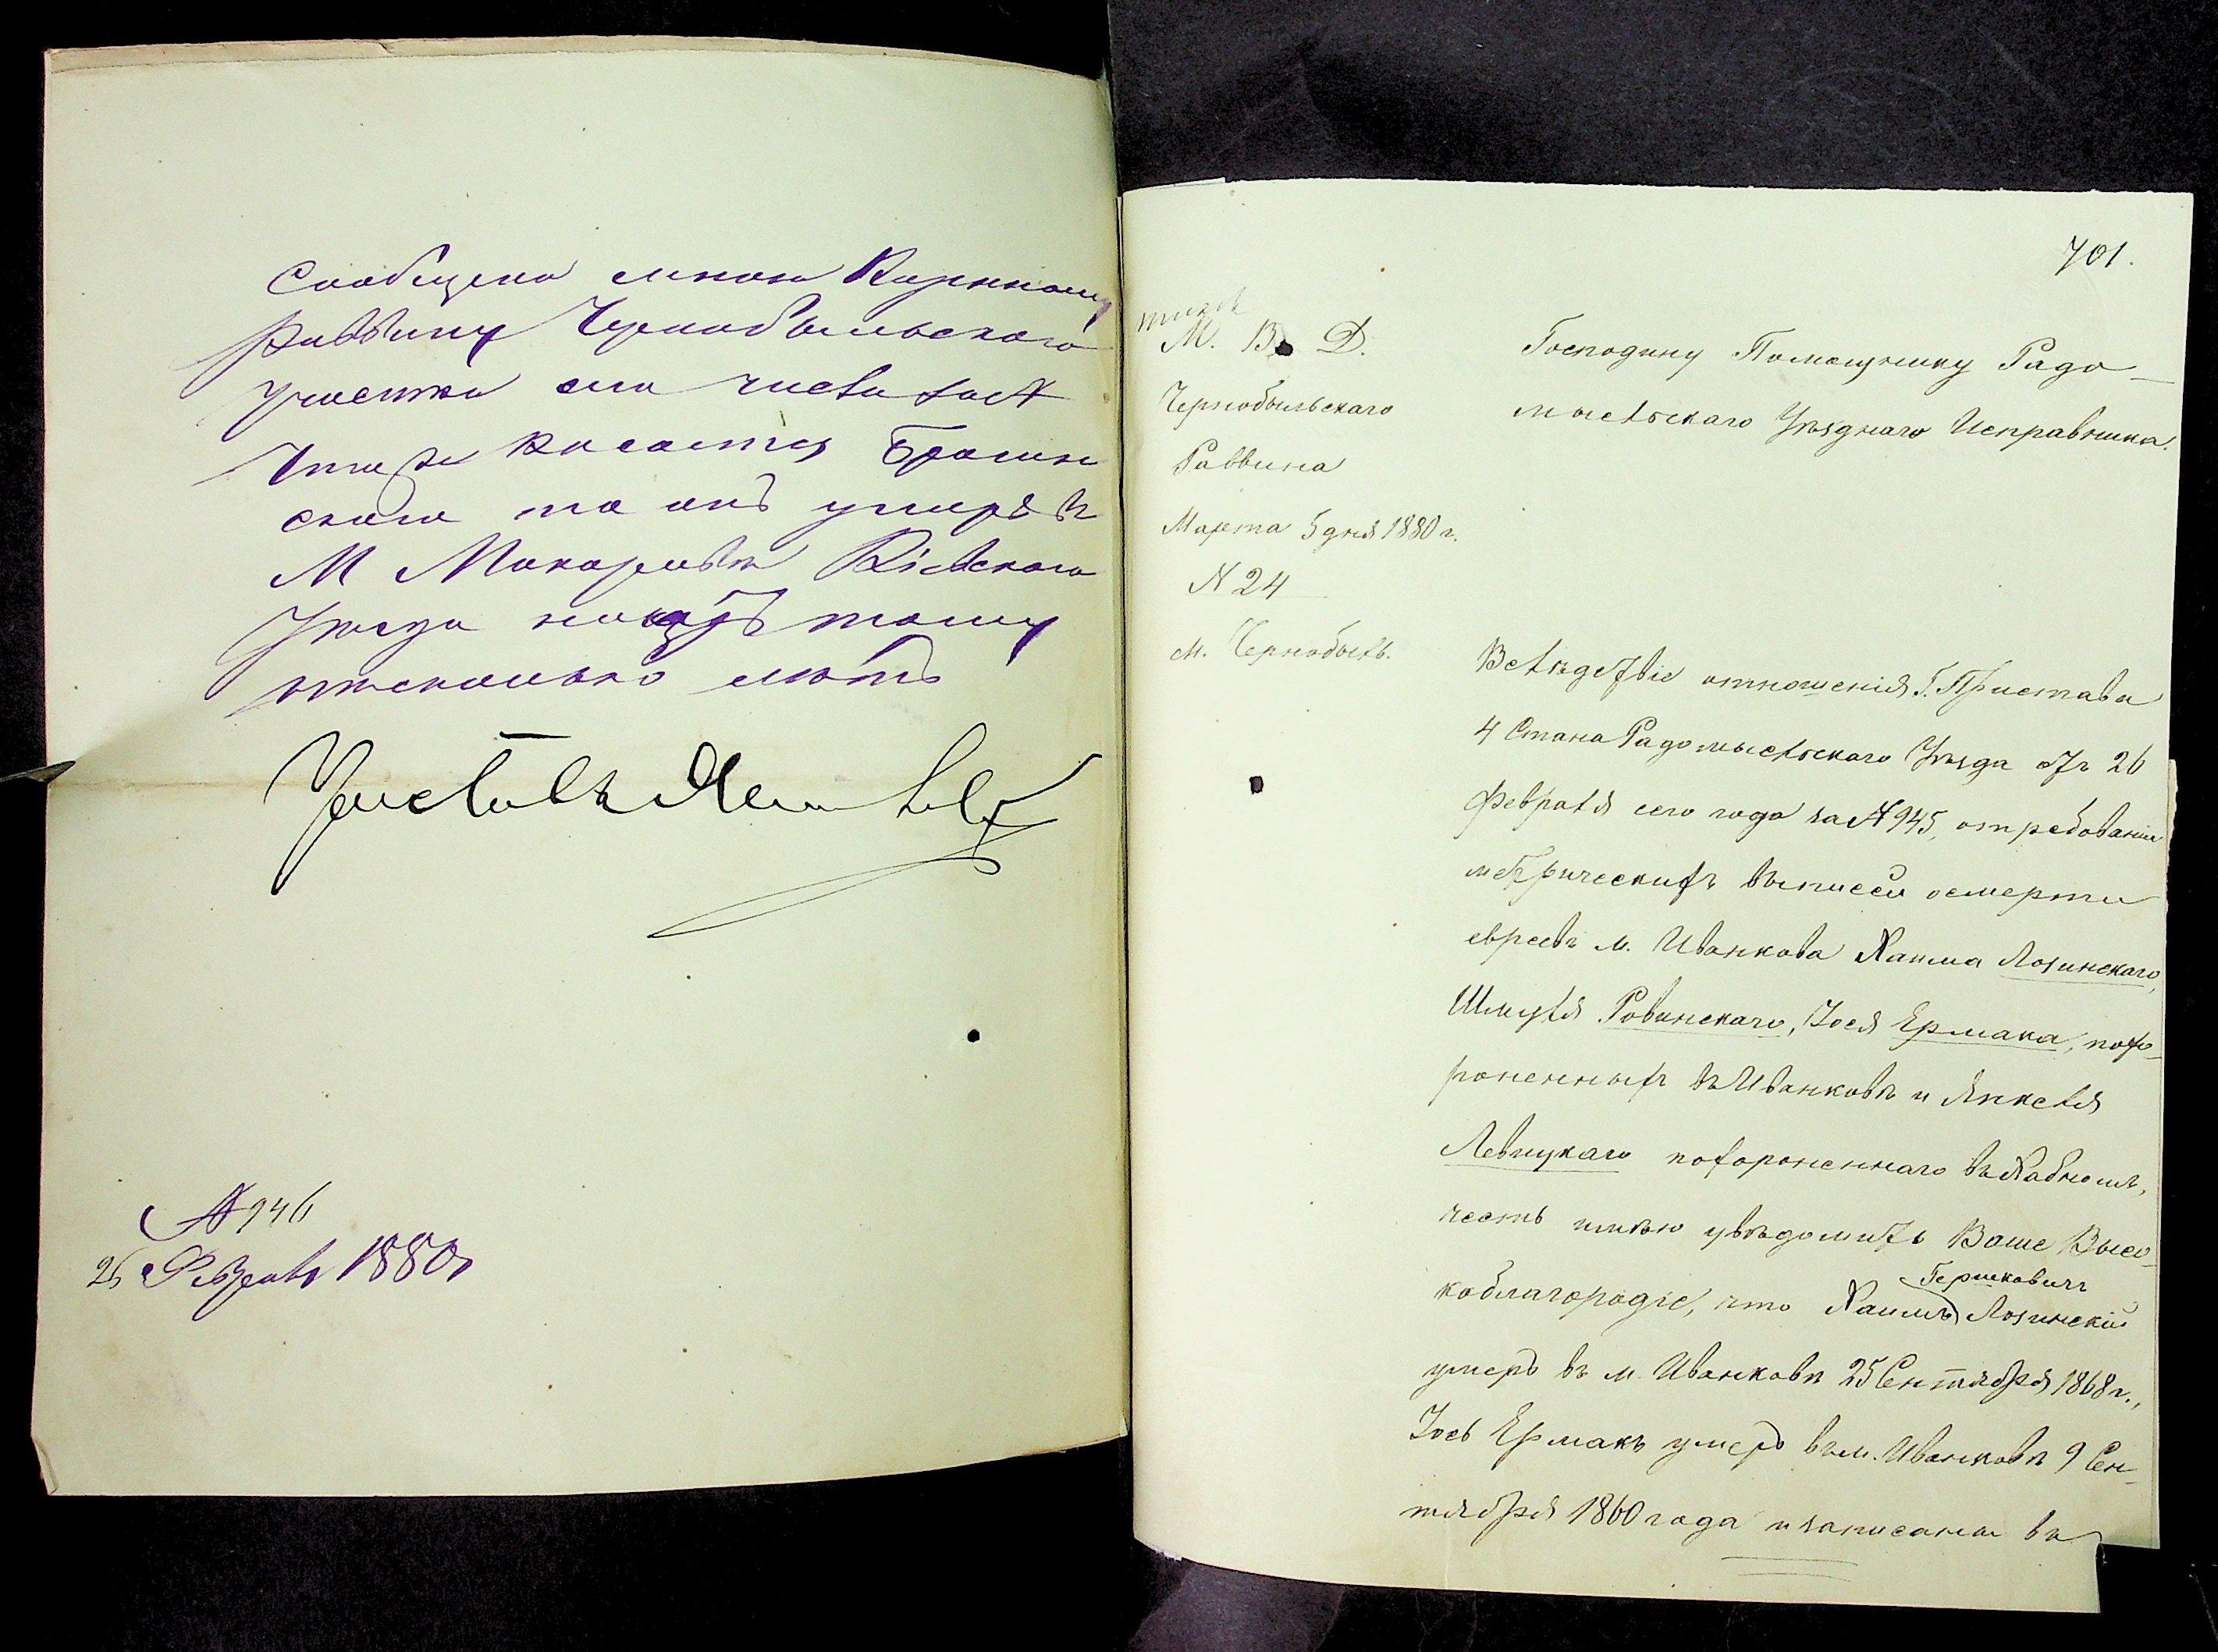 Сообщено мною Казенному
раввину Чернобыльскаго
участка сего числа за №
Что же касается Брагин
скаго то онъ умеръ въ
М Макаровѣ Кіевскаго
Уѣзда назадъ тому
нѣсколько лѣтъ
№ 946
26 Февраля 1880 г
701.
М. В. Д.
Чернобыльскаго
Раввина
Марта 5 дня 1880 г.
№ 24
м. Чернобыль.
Господину Помощнику Радо-
мысльскаго Уѣзднаго Исправника.
Вслѣдствіе отношенія Г. Пристава
4 Стана Радомысльскаго Уѣзда отъ 26
февраля сего года за № 945, о требованіи
метрическихъ выписей о смерти
евреевъ м. Иванкова Хаима Лозинскаго,
Шмуля Ровинскаго, Іося Ермака, похо-
роненныхъ въ Иванковѣ и Янкеля
Левицкаго похороненнаго въ Хабномъ,
честь имѣю увѣдомить Ваше Высо-
коблагородіе, что Хаимъ Гершковичъ Лозинскій
умеръ въ м. Иванковѣ 25 Сентября 1868 г.,
Іось Ермакъ умеръ въ м. Иванковѣ 9 Сен-
тября 1860 года и записаны въ